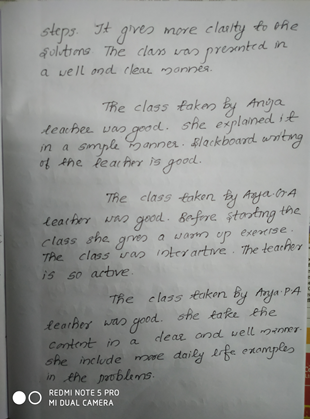 steps. It gives more clarity to the
solutions. The class was presented in
a well and clear manner.
The class taken by Anija
teacher was good. she explained it
in a simple manner. Blackboard writing
of the teacher is good.
The class taken by Arya-G.A
teacher was good. Before starting the
class she gives a warm up exercise.
The class was interactive. The teacher
is so active.
The class taken by Arya.P.A
teacher was good. she take the
content in a clear and well manner.
she include more daily life examples
in the problems.
REDMI NOTE 5 PRO
MI DUAL CAMERA